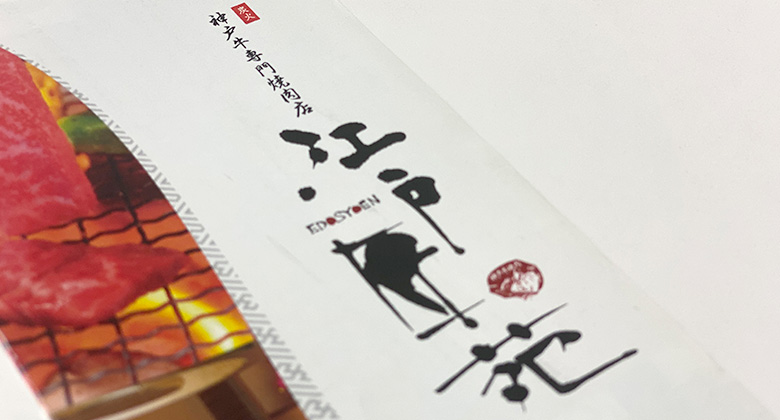 炭火
神戸牛専門焼肉店
江戸匠苑
EDOSYOEN